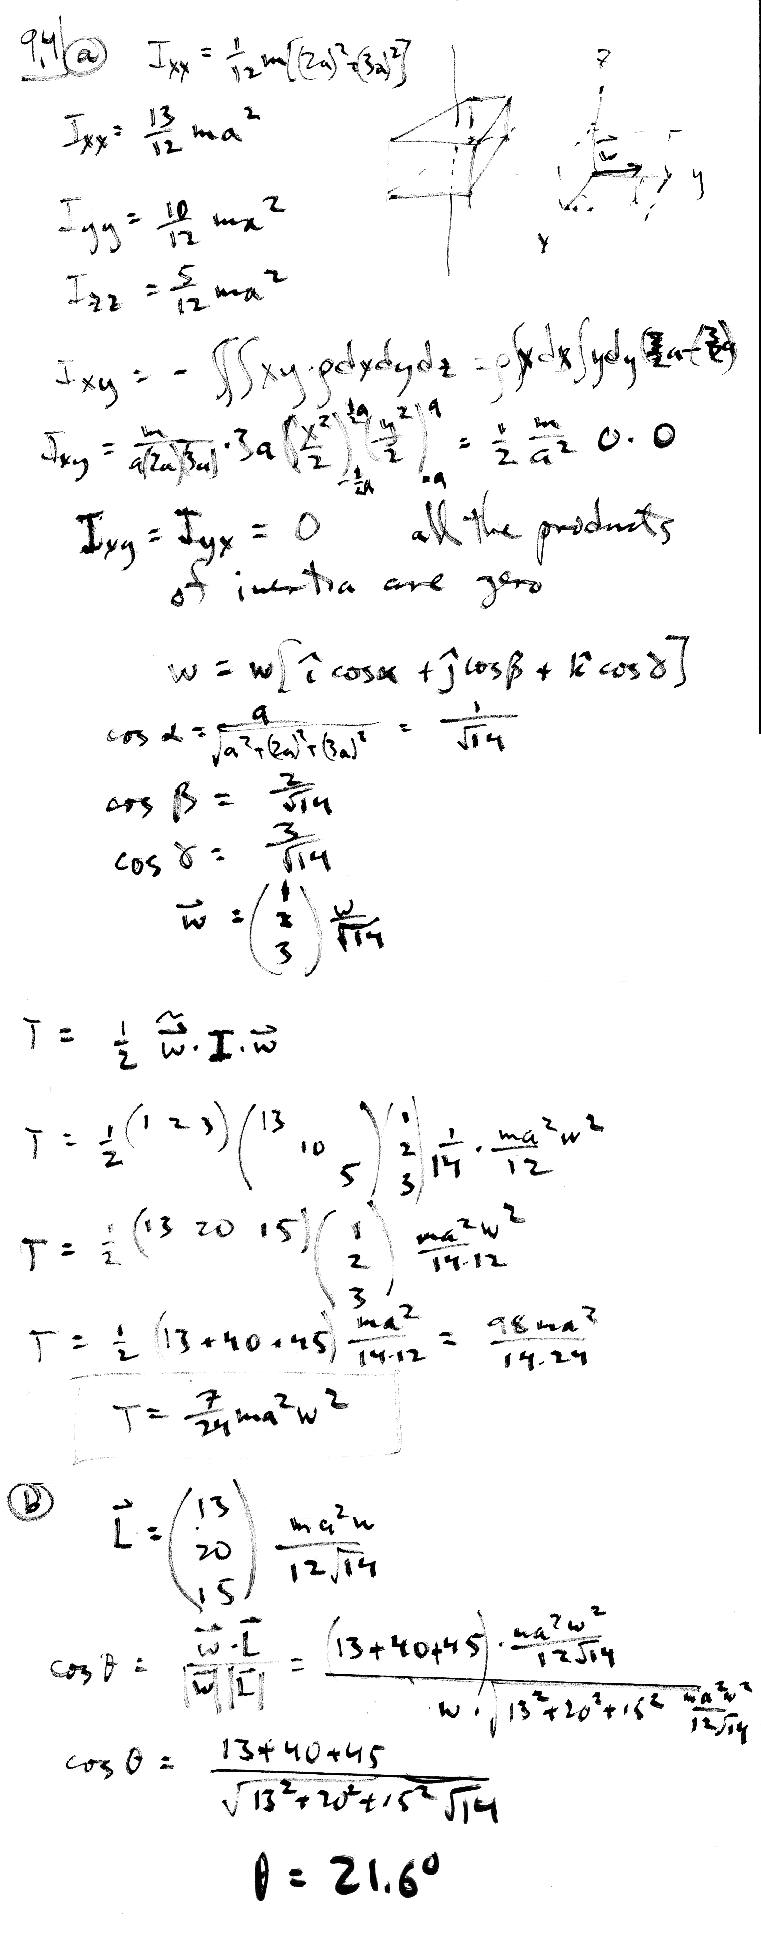 9.4 (a) Ixx = 1/12 m[(2a)² + (3a)²]
Ixx = 13/12 ma²
Iyy = 10/12 ma²
Izz = 5/12 ma²
z
w
y
x
Ixy = - ∫∫∫ xy·ρdxdydz = ρ∫xdx∫ydy (3/2 a - (3/2)a)
Ixy = m/(a(2a)(3a)) · 3a (x²/2)^{1/2 a}_{-1/2 a} (y²/2)^{a}_{-a} = 1/2 m/a² 0·0
Ixy = Iyx = 0 all the products
of inertia are zero
w = w[î cosα + ĵ cosβ + k̂ cosγ]
cos α = a/√(a²+(2a)²+(3a)²) = 1/√14
cos β = 2/√14
cos γ = 3/√14
w⃗ = (1 2 3) w/√14
T = 1/2 w̃⃗ · I · w⃗
T = 1/2 (1 2 3) (13 10 5) (1 2 3) 1/14 · ma²w²/12
T = 1/2 (13 20 15) (1 2 3) ma²w²/14·12
T = 1/2 (13+40+45) ma²/14·12 = 98 ma²/14·24
T = 7/24 ma²w²
(b) L⃗ = (13 20 15) ma²w/12√14
cos θ = w⃗·L⃗/|w⃗||L⃗| = (13+40+45)·ma²w²/12√14 / w·√(13²+20²+15²) ma²w²/12√14
cos θ = 13+40+45 / √(13²+20²+15²) √14
θ = 21.6°